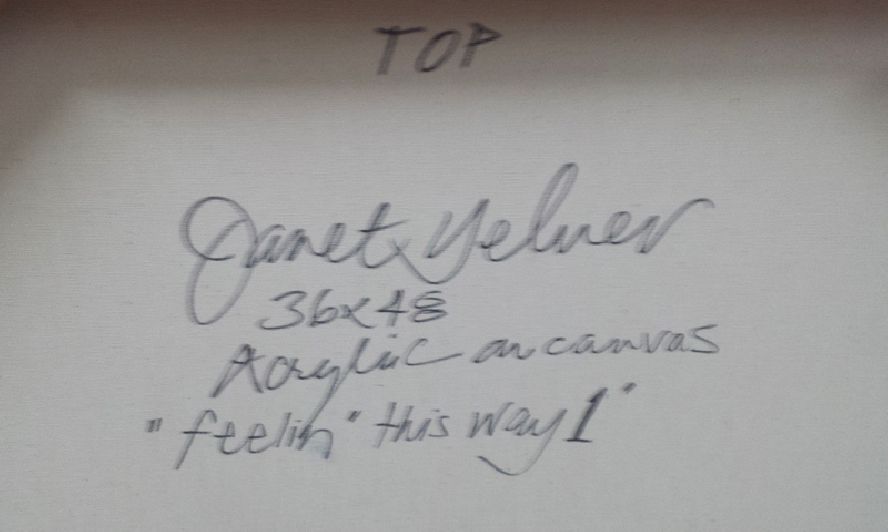 TOP
Janet Yelner
36x48
Acrylic on canvas
"feelin" this way 1"